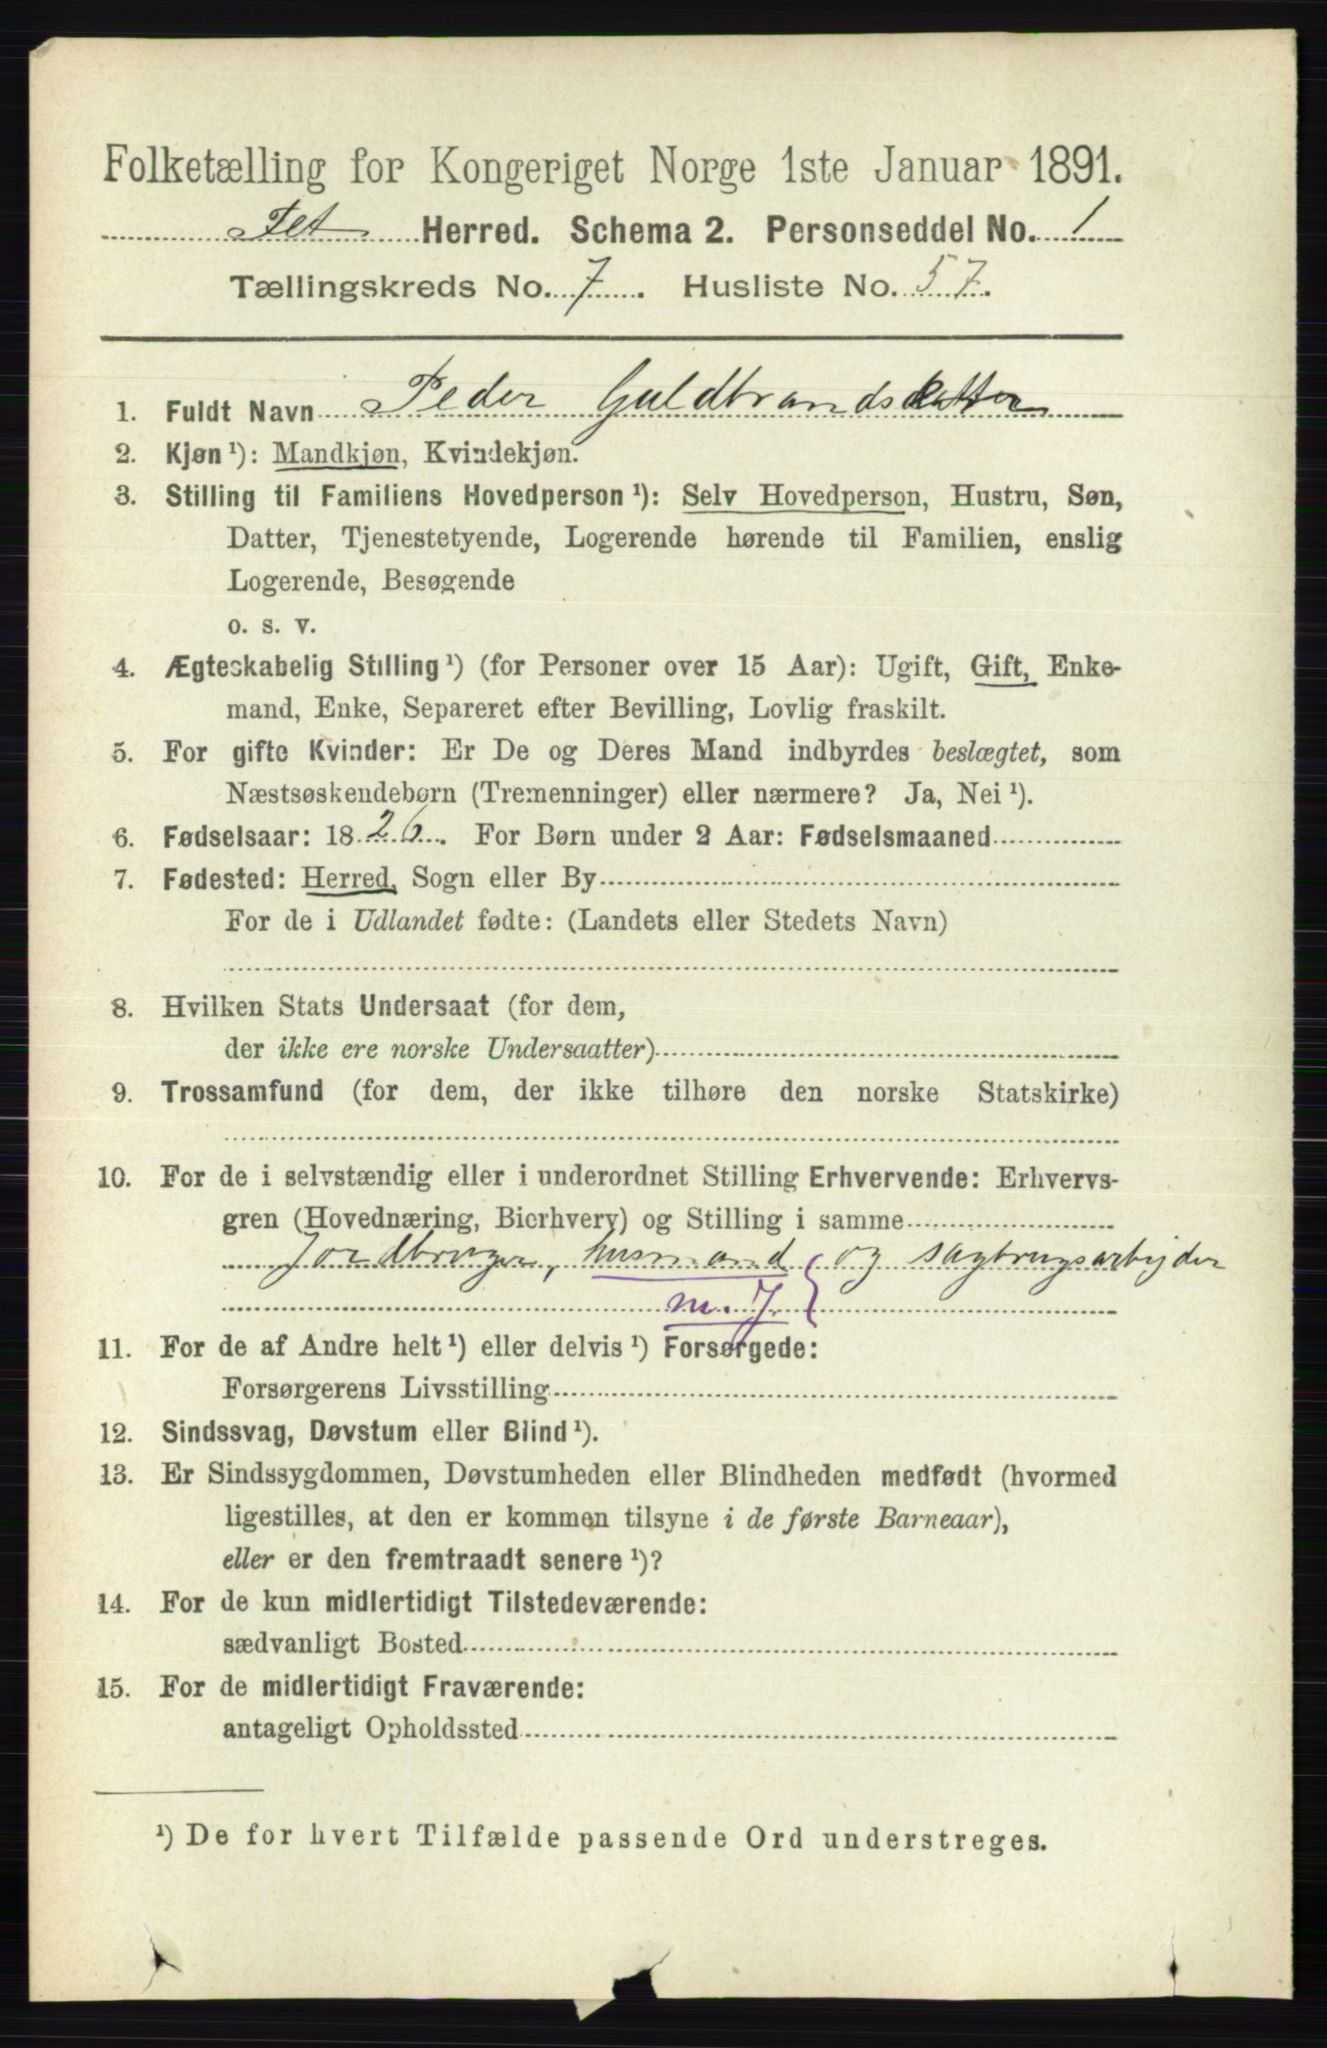 Folketælling for Kongeriget Norge 1ste Januar 1891.
Fet Herred. Schema 2. Personseddel No. 1
Tællingskreds No. 7. Husliste No. 57.
1. Fuldt Navn Peder Guldbrandsdatter
2. Kjøn ¹): Mandkjøn, Kvindekjøn.
3. Stilling til Familiens Hovedperson ¹): Selv Hovedperson, Hustru, Søn,
Datter, Tjenestetyende, Logerende hørende til Familien, enslig
Logerende, Besøgende
o. s. v.
4. Ægteskabelig Stilling ¹) (for Personer over 15 Aar): Ugift, Gift, Enke-
mand, Enke, Separeret efter Bevilling, Lovlig fraskilt.
5. For gifte Kvinder: Er De og Deres Mand indbyrdes beslægtet, som
Næstsøskendebørn (Tremenninger) eller nærmere? Ja, Nei ¹).
6. Fødselsaar: 1826. For Børn under 2 Aar: Fødselsmaaned
7. Fødested: Herred, Sogn eller By
For de i Udlandet fødte: (Landets eller Stedets Navn)
8. Hvilken Stats Undersaat (for dem,
der ikke ere norske Undersaatter)
9. Trossamfund (for dem, der ikke tilhøre den norske Statskirke)
10. For de i selvstændig eller i underordnet Stilling Erhvervende: Erhvervs-
gren (Hovednæring, Bierhverv) og Stilling i samme
Jordbruger, husmand og sagbrugsarbejder
m. J.
11. For de af Andre helt ¹) eller delvis ¹) Forsørgede:
Forsørgerens Livsstilling
12. Sindssvag, Døvstum eller Blind ¹).
13. Er Sindssygdommen, Døvstumheden eller Blindheden medfødt (hvormed
ligestilles, at den er kommen tilsyne i de første Barneaar),
eller er den fremtraadt senere ¹)?
14. For de kun midlertidigt Tilstedeværende:
sædvanligt Bosted
15. For de midlertidigt Fraværende:
antageligt Opholdssted
¹) De for hvert Tilfælde passende Ord understreges.